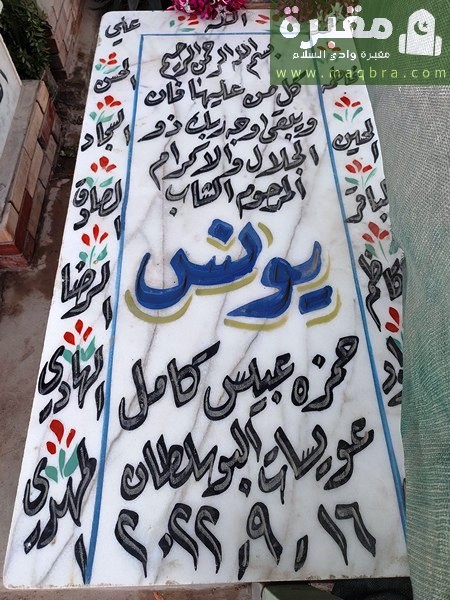 مقبرة
مقبرة وادي السلام
www.maqbra.com
الله
علي
بسم الله الرحمن الرحيم
كل من عليها فان
ويبقى وجه ربك ذو
الجلال والاكرام
المرحوم الشاب
يونس
حمزه عبيس كامل
عويسات البوسلطان
٢٠٢٢ . ٩ . ١٦
الحسن
السجاد
الصادق
الرضا
الهادي
المهدي
الحسين
الباقر
الكاظم